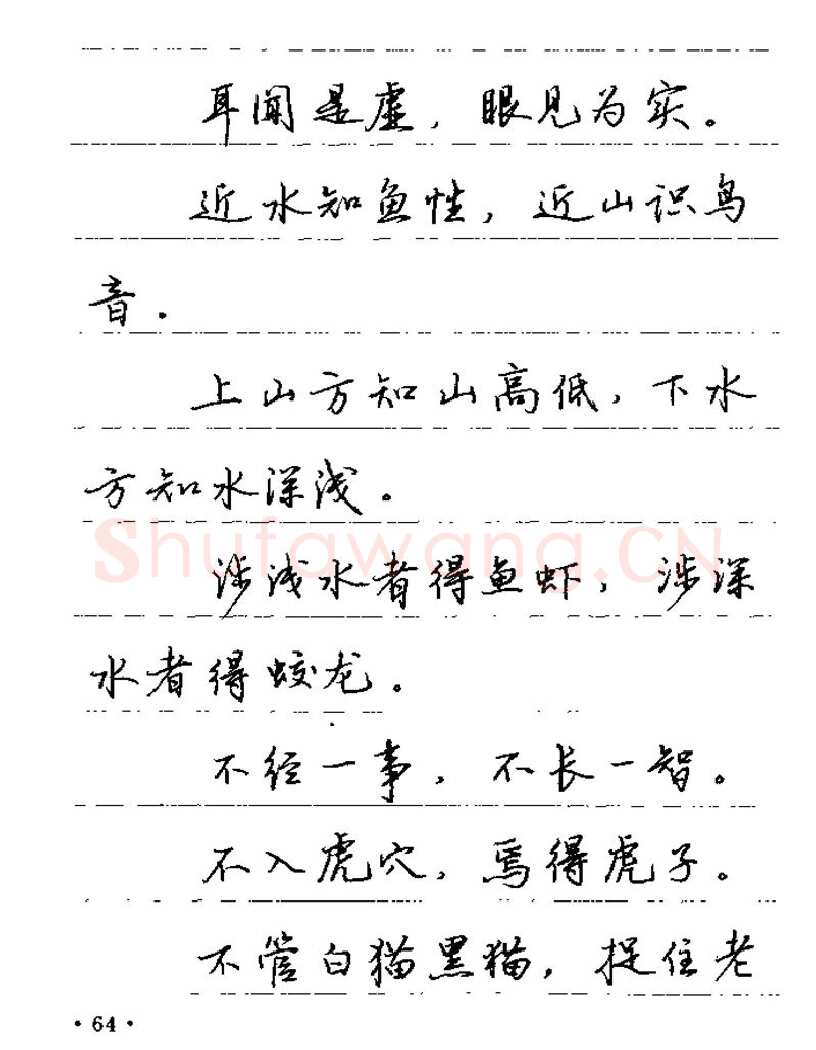 耳闻是虚，眼见为实。
近水知鱼性，近山识鸟
音。
上山方知山高低，下水
方知水深浅。
Shufawang.CN
涉浅水者得鱼虾，涉深
水者得蛟龙。
不经一事，不长一智。
不入虎穴，焉得虎子。
不管白猫黑猫，捉住老
·64·